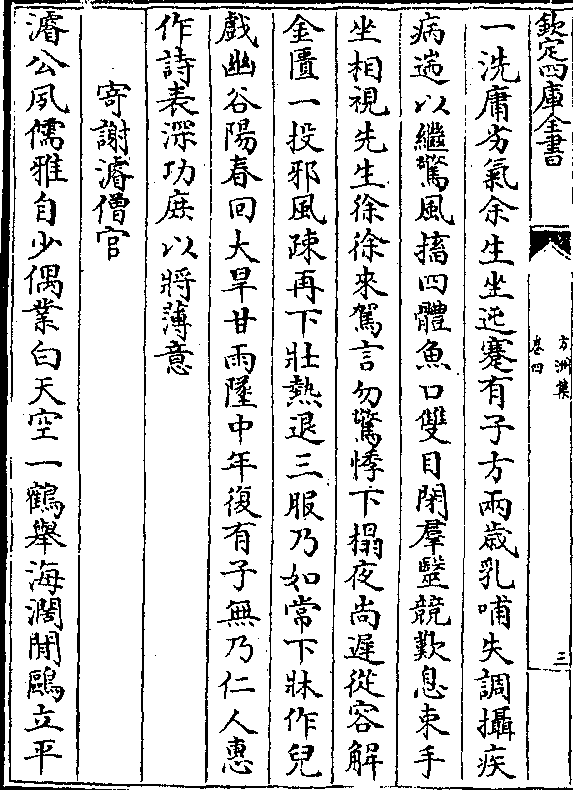 欽定四庫全書
方洲集
卷四
三
一洗庸劣氣余生坐迍蹇有子方兩歲乳哺失調攝疾
病遄以繼驚風搐四體魚口雙目閉羣毉競歎息束手
坐相視先生徐徐來駕言勿驚悸下榻夜尚遲從容解
金匱一投邪風疎再下壯熱退三服乃如常下牀作兒
戲幽谷陽春回大旱甘雨墜中年復有子無乃仁人惠
作詩表深功庶以將薄意
寄謝濬僧官
濬公夙儒雅自少偶業白天空一鶴舉海濶閒鷗立平